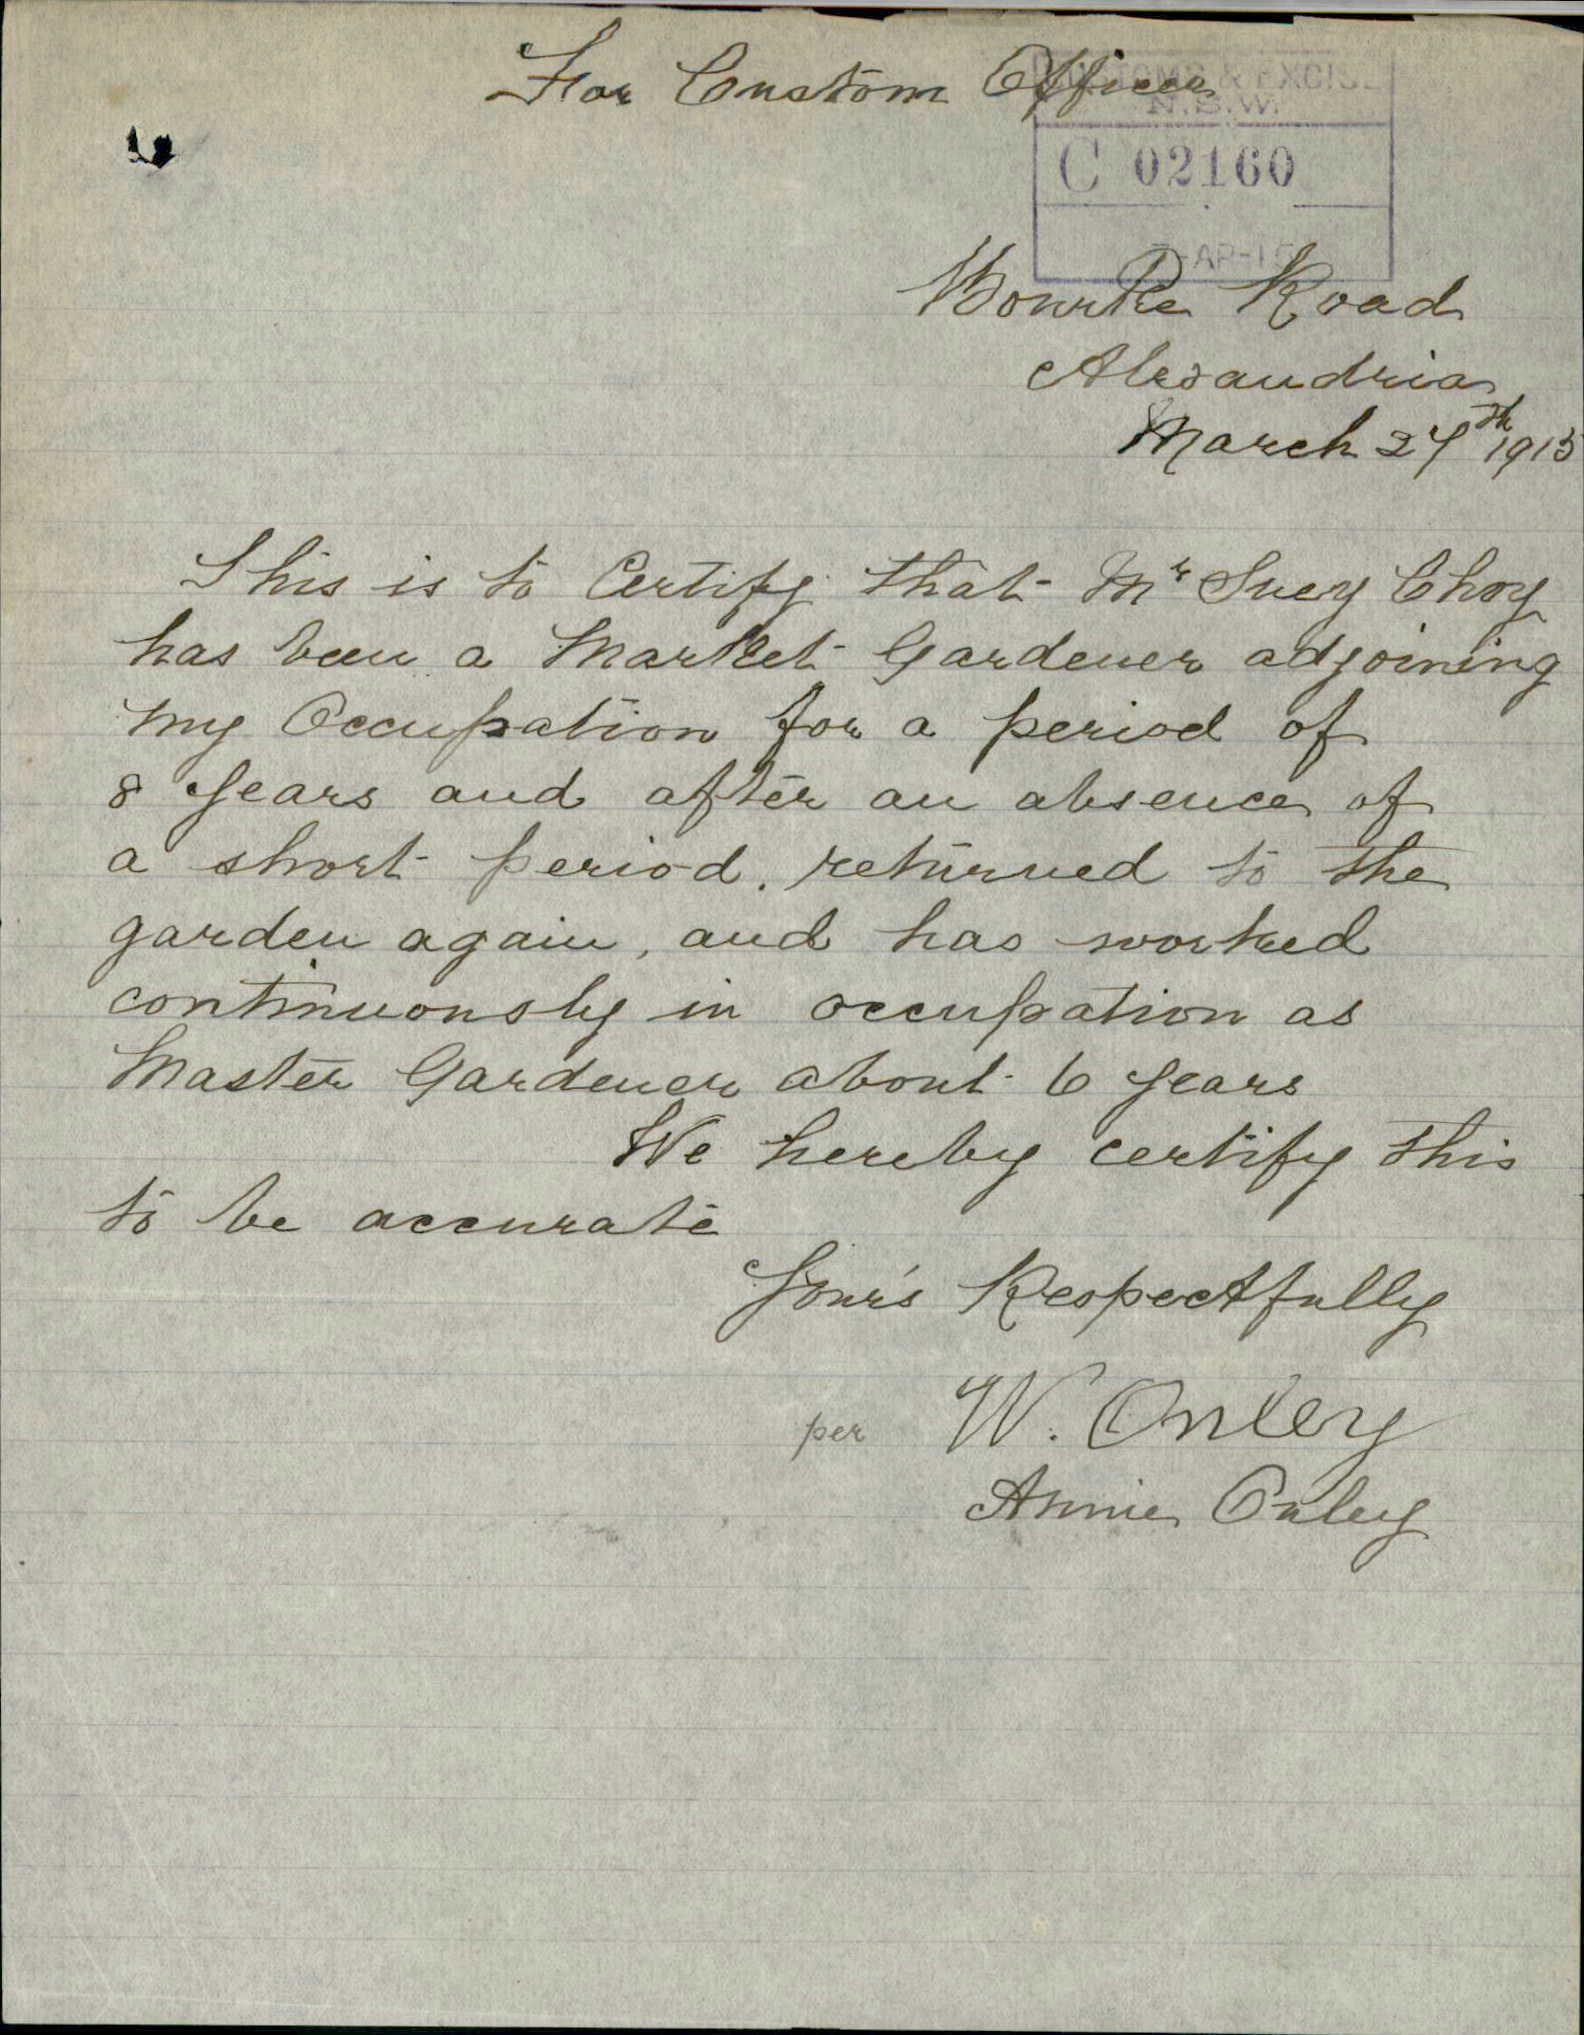 For Custom Officer
CUSTOMS & EXCISE
N.S.W.
C 02160
AP-15
Bourke Road
Alexandria
March 27th 1915
This is to Certify that Mr Suey Choy
has been a Market Gardener adjoining
my Occupation for a period of
8 years and after an absence of
a short period. returned to the
garden again, and has worked
continuously in occupation as
Master Gardener about 6 years
We hereby certify this
to be accurate
Your's Respectfully
per W. Onley
Annie Onley